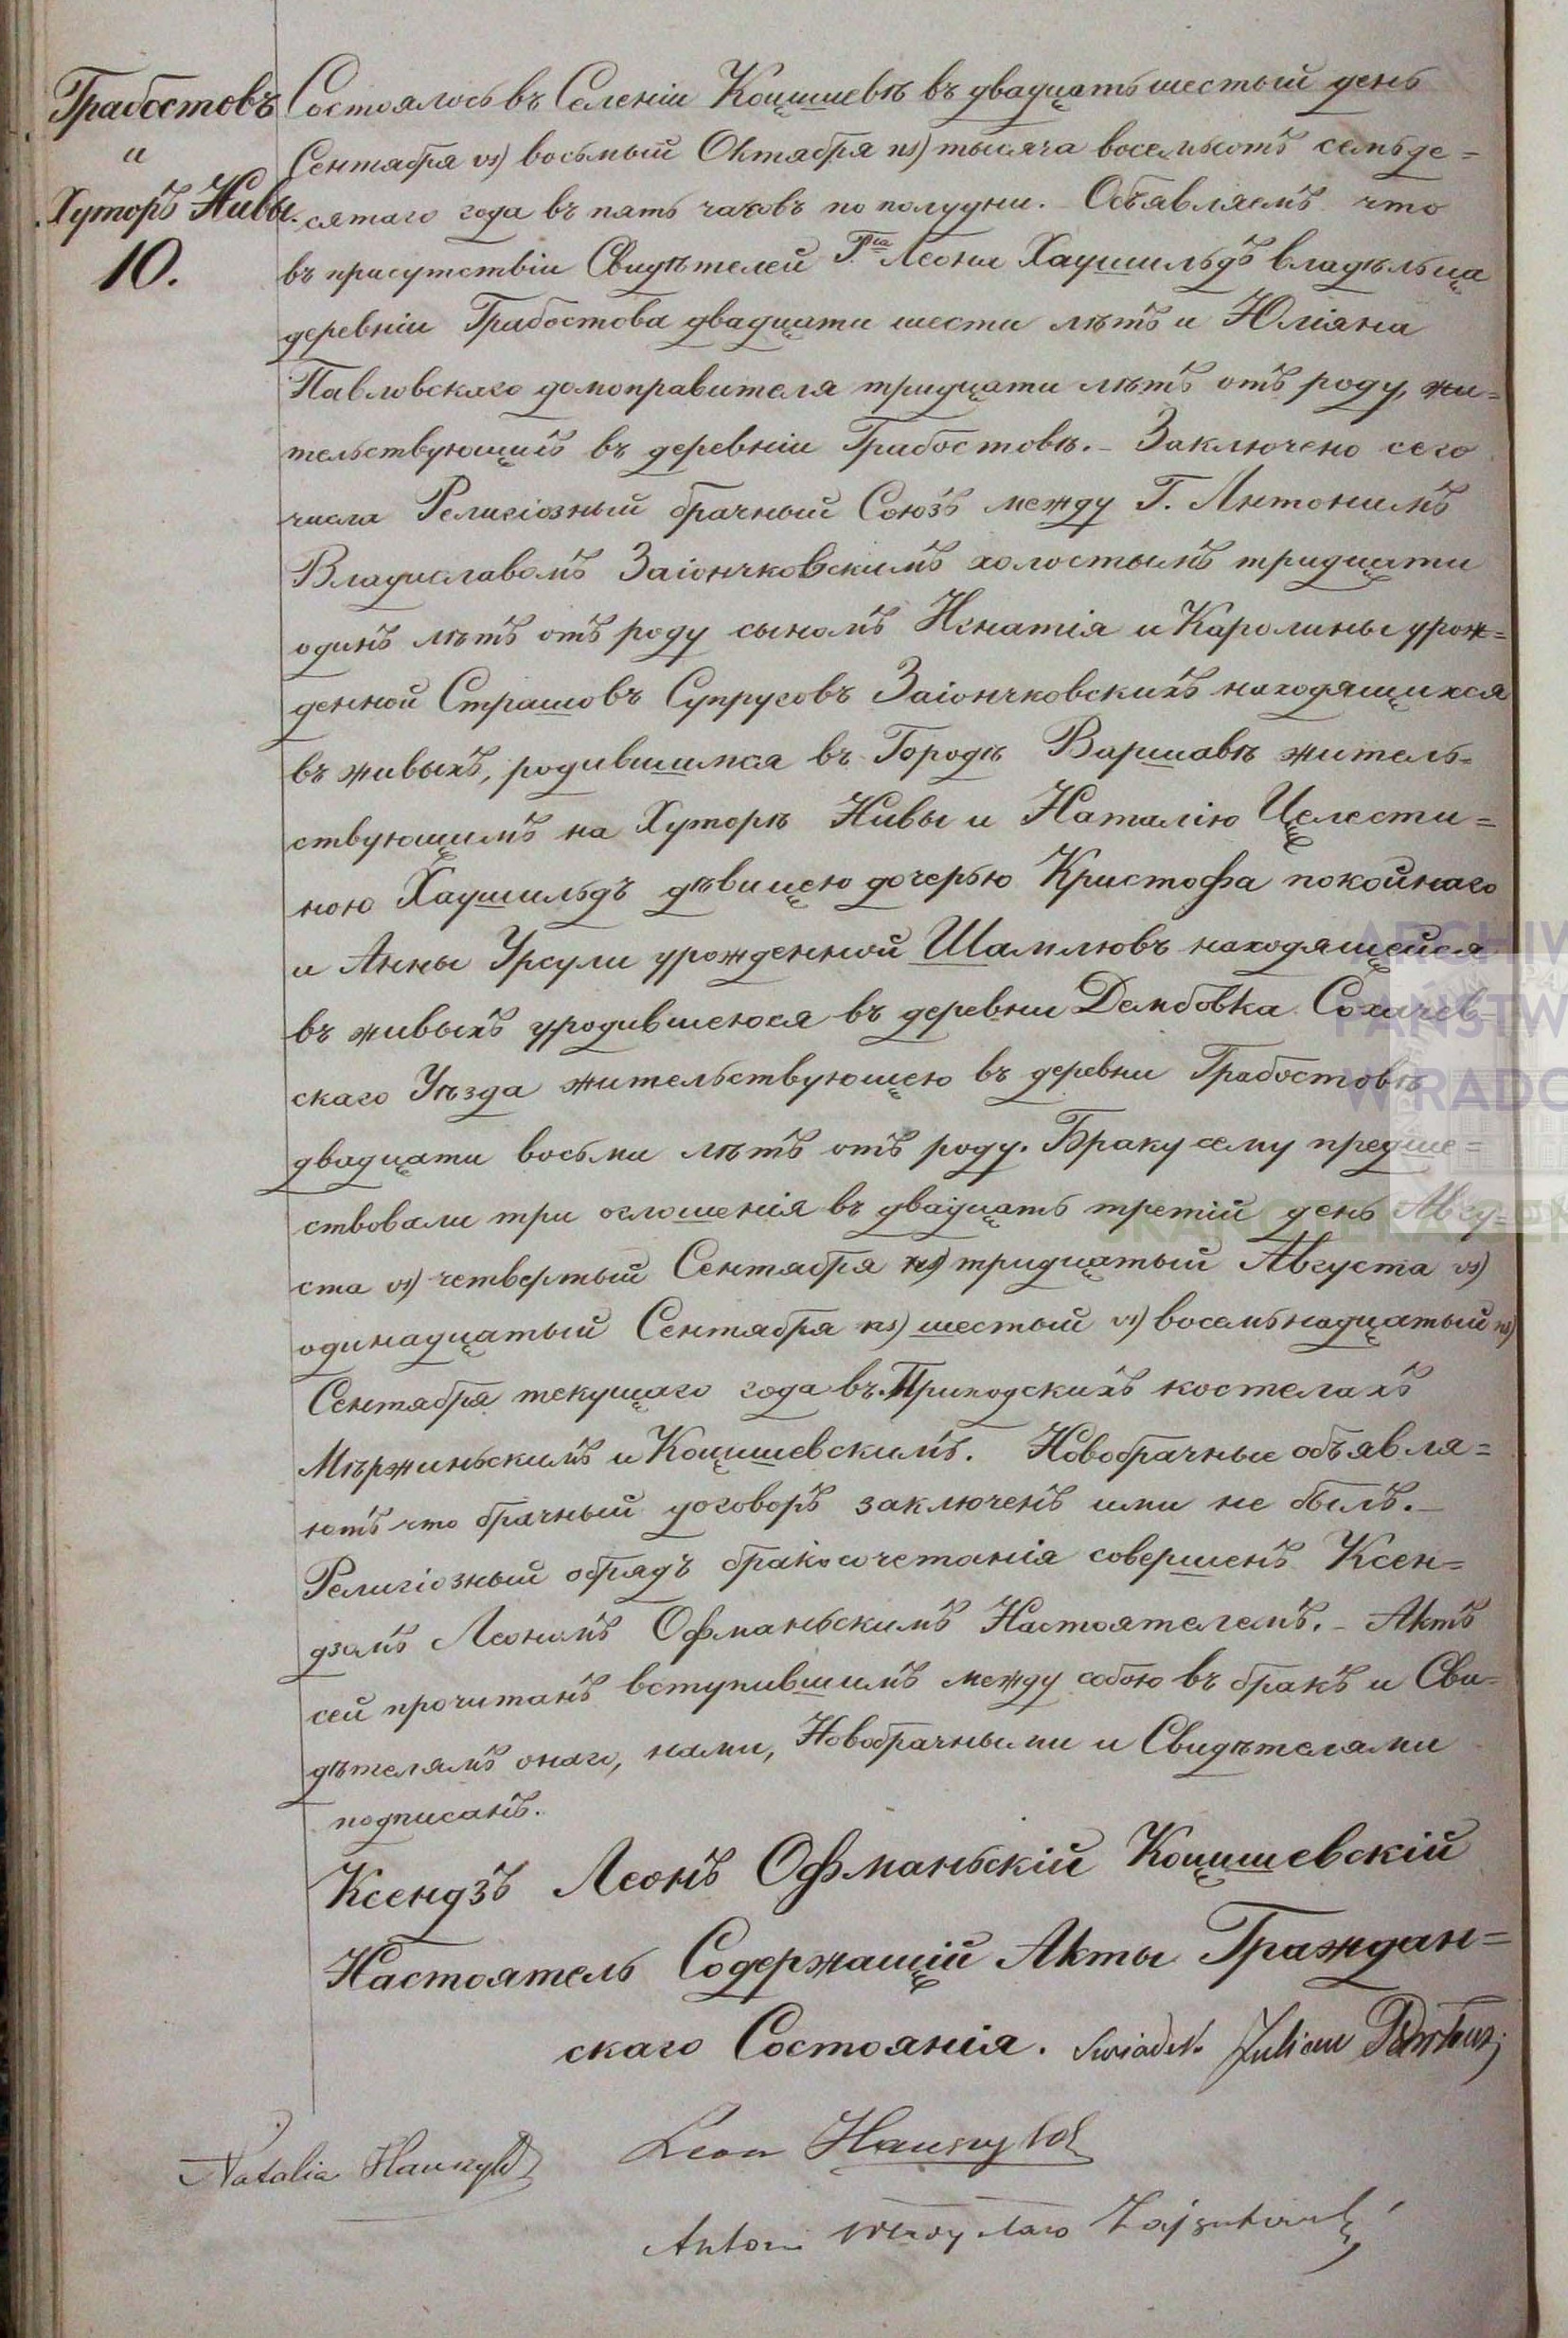 Грабостовъ
и
Хуторъ Нивы.
10.
Состоялось въ Селеніи Коцишевѣ въ двадцать шестый день
Сентября vs) восьмый Октября ns) тысяча восемьсотъ семьде=
сятаго года въ пять часовъ по полудни. Объявляемъ что
въ присутствіи Свидѣтелей Леона Хаушильдъ владѣльца
деревніи Грабостова двадцати шести лѣтъ и Юліяна
Павловскаго домоправителя тридцати лѣтъ отъ роду, жи=
тельствующихъ въ деревніи Грабостовѣ. - Заключено сего
числа Религіозный брачный Союзъ между Г. Антонимъ
Владиславомъ Заіончковскимъ холостымъ тридцати
одинъ лѣтъ отъ роду сыномъ Игнатія и Каролины урож=
денной Страшовъ Супругов Заіончковскихъ находящихся
въ живыхъ, родившимся въ Городѣ Варшавѣ житель=
ствующимъ на Хуторѣ Нивы и Наталію Целести=
ною Хаушильдъ дѣвицею дочерью Кристофа покойнаго
и Анны Урсули урожденной находящейся
въ живыхъ уродившеюся въ деревни Дембовка Сохачев=
скаго Уѣзда жительствующею въ деревни Грабостовѣ
двадцати восьми лѣтъ отъ роду. Браку сему предше=
ствовали три оглошенія въ двадцать третій день Авгу=
ста vs) четвертый Сентября ns) тридцатый Августа vs)
одинадцатый Сентября ns) шестый vs) восемьнадцатый ns)
Сентября текущаго года въ Приходскихъ костелахъ
Мѣржиньскимъ и Коцишевскимъ. Новобрачные объявля=
ютъ что брачный договоръ заключенъ ими не былъ. -
Религіозный обрядъ бракосочетанія совершенъ Ксен=
дзомъ Леономъ Офманьскимъ Настоятелемъ. - Актъ
сей прочитанъ вступившимъ между собою въ бракъ и Сви=
дѣтелямъ онаго, нами, Новобрачными и Свидѣтелями
подписанъ.
Ксендзъ Леонъ Офманьскій Коцишевскій
Настоятель Содержащій Акты Граждан=
скаго Состоянія. Swiadek Julian
Leon Hauszyld
Natalia Hauszyld
Antoni Władysław
ARCHIW
PAŃSTW
W RADO
SKANOTEKA GEN